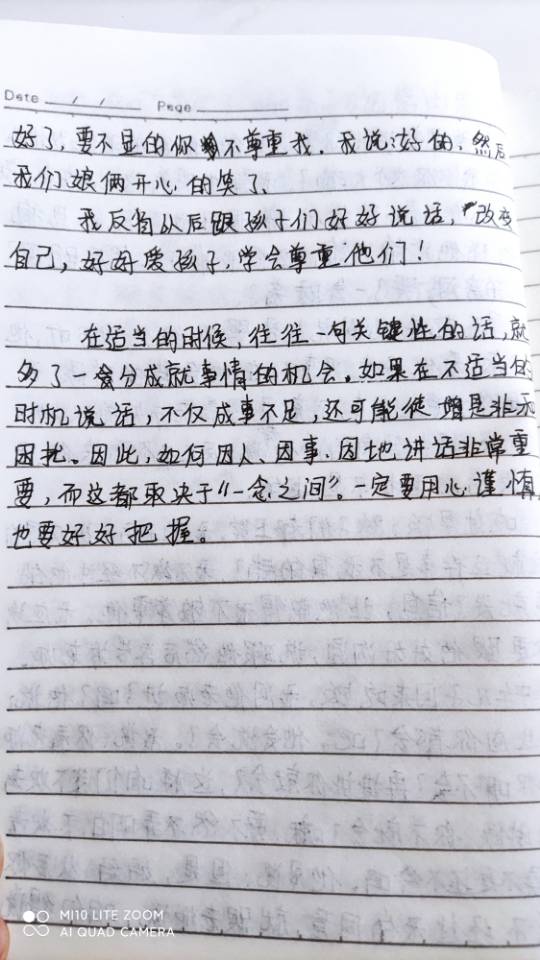 Date / / Page
好了，要不显的你不尊重我．我说：好的，然后
我们娘俩开心的笑了
我反省以后跟孩子们好好说话，改变
自己，好好爱孩子，学会尊重他们！
在适当的时候，往往一句关键性的话，就
多了一食分成就事情的机会。如果在不适当的
时机说话，不仅成事不足，还可能徒增是非与
困扰。因此，如何因人、因事、因地讲话非常重
要，而这都取决于“一念之间”。一定要用心谨慎，
也要好好把握。
MI10 LITE ZOOM
AI QUAD CAMERA